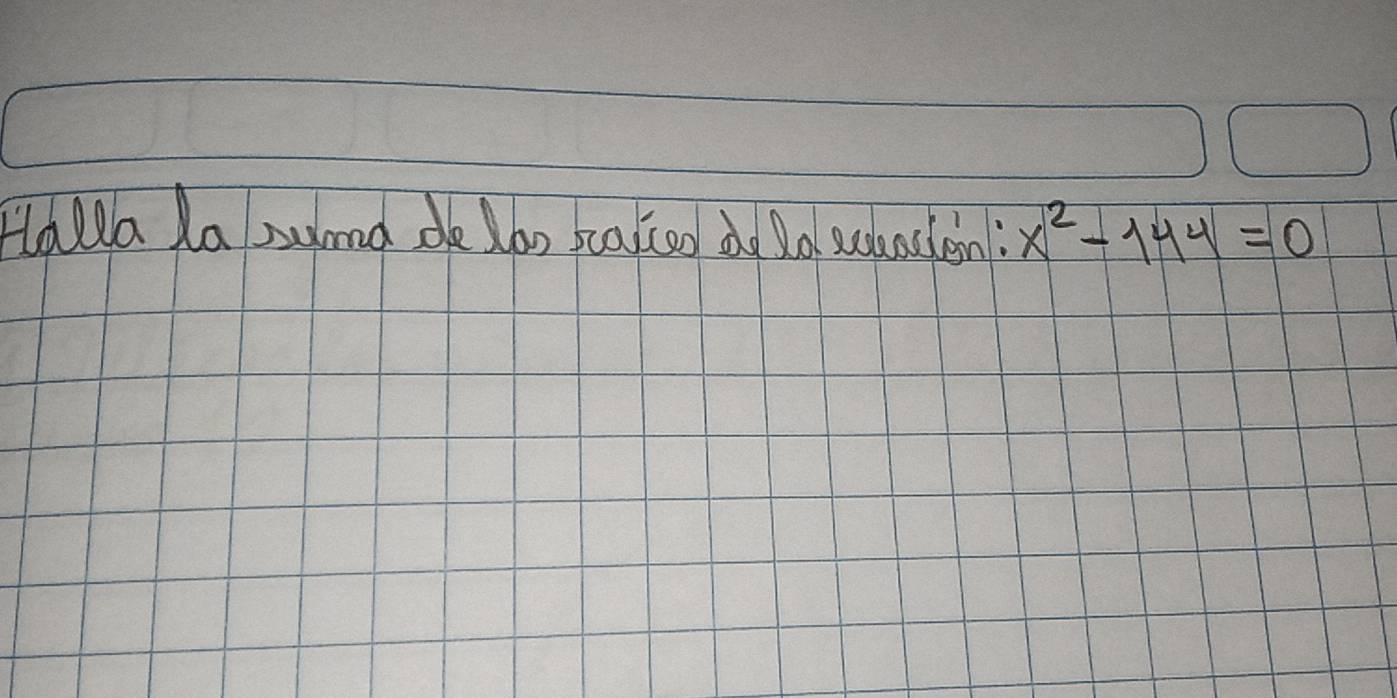 Halla la suma de las raíces de la ecuación: x² - 144 = 0